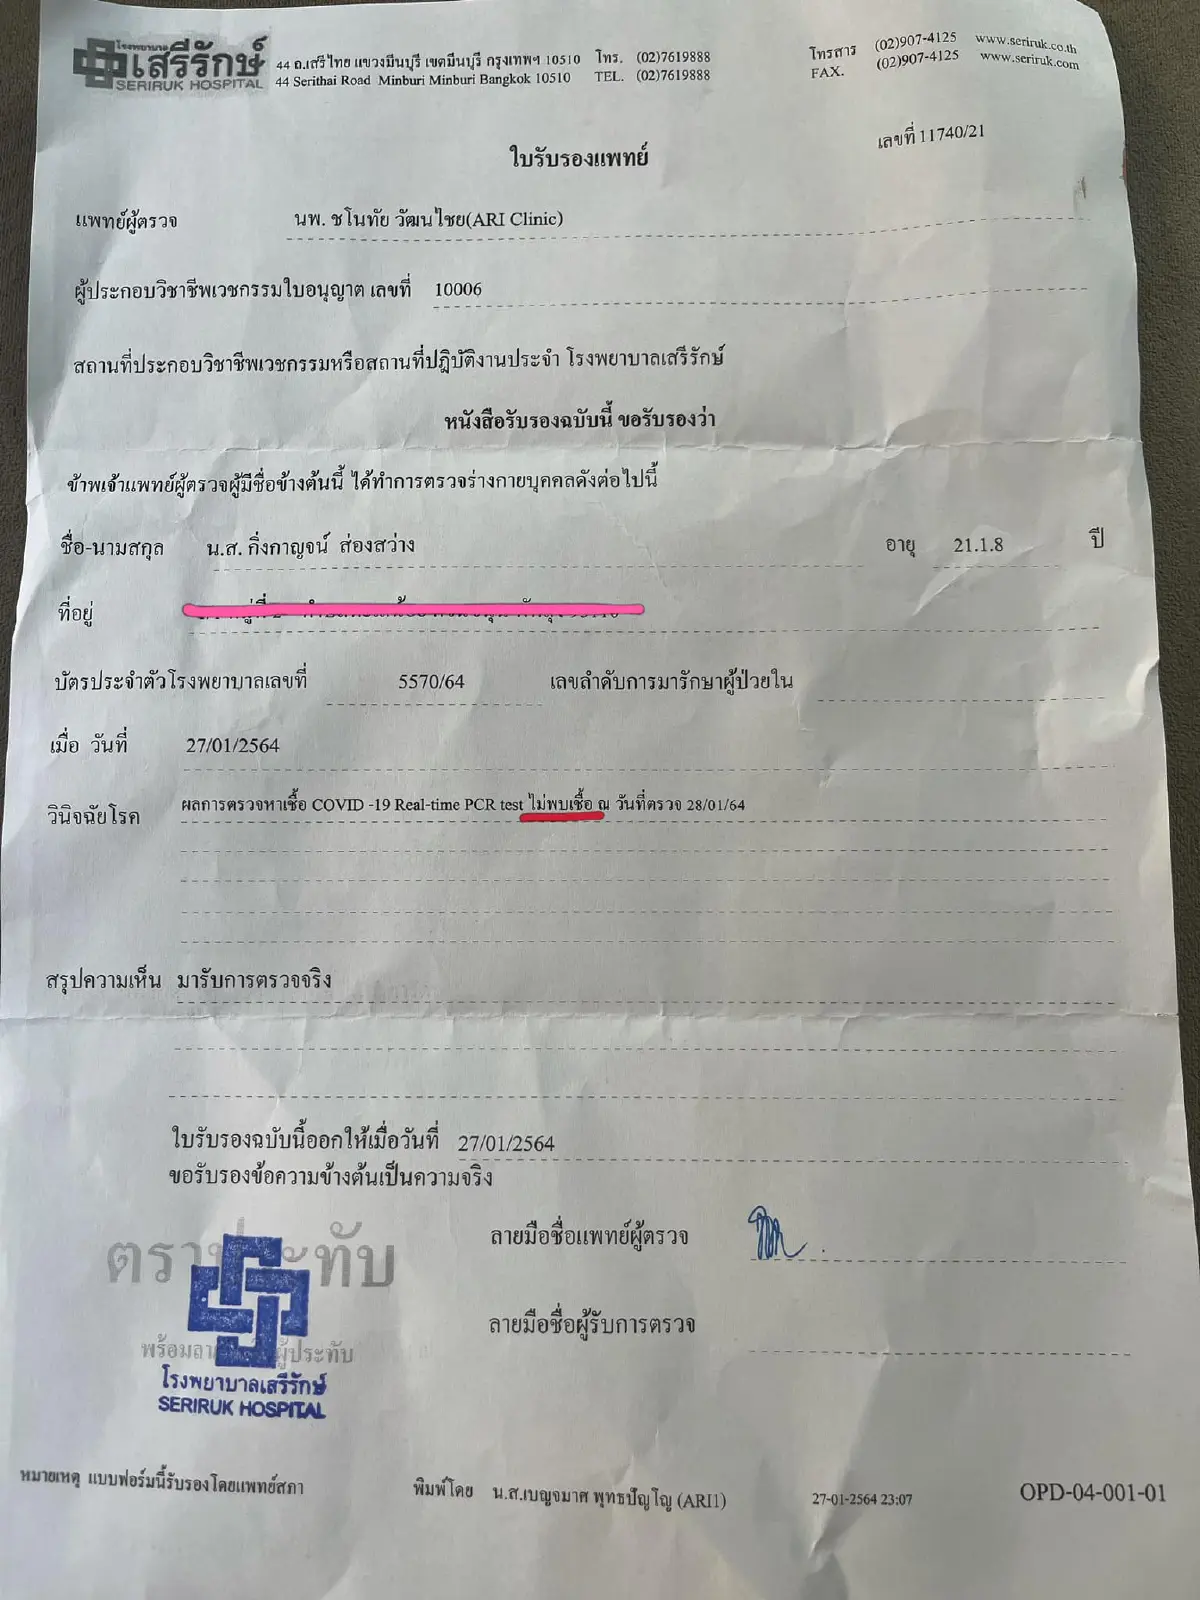 โรงพยาบาล
เสรีรักษ์
SERIRUK HOSPITAL
44 ถ.เสรีไทย แขวงมีนบุรี เขตมีนบุรี กรุงเทพฯ 10510 โทร. (02)7619888
44 Serithai Road Minburi Minburi Bangkok 10510 TEL. (02)7619888
โทรสาร (02)907-4125 www.seriruk.co.th
FAX. (02)907-4125 www.seriruk.com
เลขที่ 11740/21
ใบรับรองแพทย์
แพทย์ผู้ตรวจ นพ. ชโนทัย วัฒนไชย(ARI Clinic)
ผู้ประกอบวิชาชีพเวชกรรมใบอนุญาต เลขที่ 10006
สถานที่ประกอบวิชาชีพเวชกรรมหรือสถานที่ปฎิบัติงานประจำ โรงพยาบาลเสรีรักษ์
หนังสือรับรองฉบับนี้ ขอรับรองว่า
ข้าพเจ้าแพทย์ผู้ตรวจผู้มีชื่อข้างต้นนี้ ได้ทำการตรวจร่างกายบุคคลดังต่อไปนี้
ชื่อ-นามสกุล น.ส. กิ่งกาญจน์ ส่องสว่าง อายุ 21.1.8 ปี
ที่อยู่
บัตรประจำตัวโรงพยาบาลเลขที่ 5570/64 เลขลำดับการมารักษาผู้ป่วยใน
เมื่อ วันที่ 27/01/2564
วินิจฉัยโรค ผลการตรวจหาเชื้อ COVID -19 Real-time PCR test ไม่พบเชื้อ ณ วันที่ตรวจ 28/01/64
สรุปความเห็น มารับการตรวจจริง
ใบรับรองฉบับนี้ออกให้เมื่อวันที่ 27/01/2564
ขอรับรองข้อความข้างต้นเป็นความจริง
ลายมือชื่อแพทย์ผู้ตรวจ
ตราประทับ
ลายมือชื่อผู้รับการตรวจ
โรงพยาบาลเสรีรักษ์
SERIRUK HOSPITAL
หมายเหตุ แบบฟอร์มนี้รับรองโดยแพทย์สภา พิมพ์โดย น.ส.เบญจมาศ พุทธปัญโญ (ARI1) 27-01-2564 23:07 OPD-04-001-01